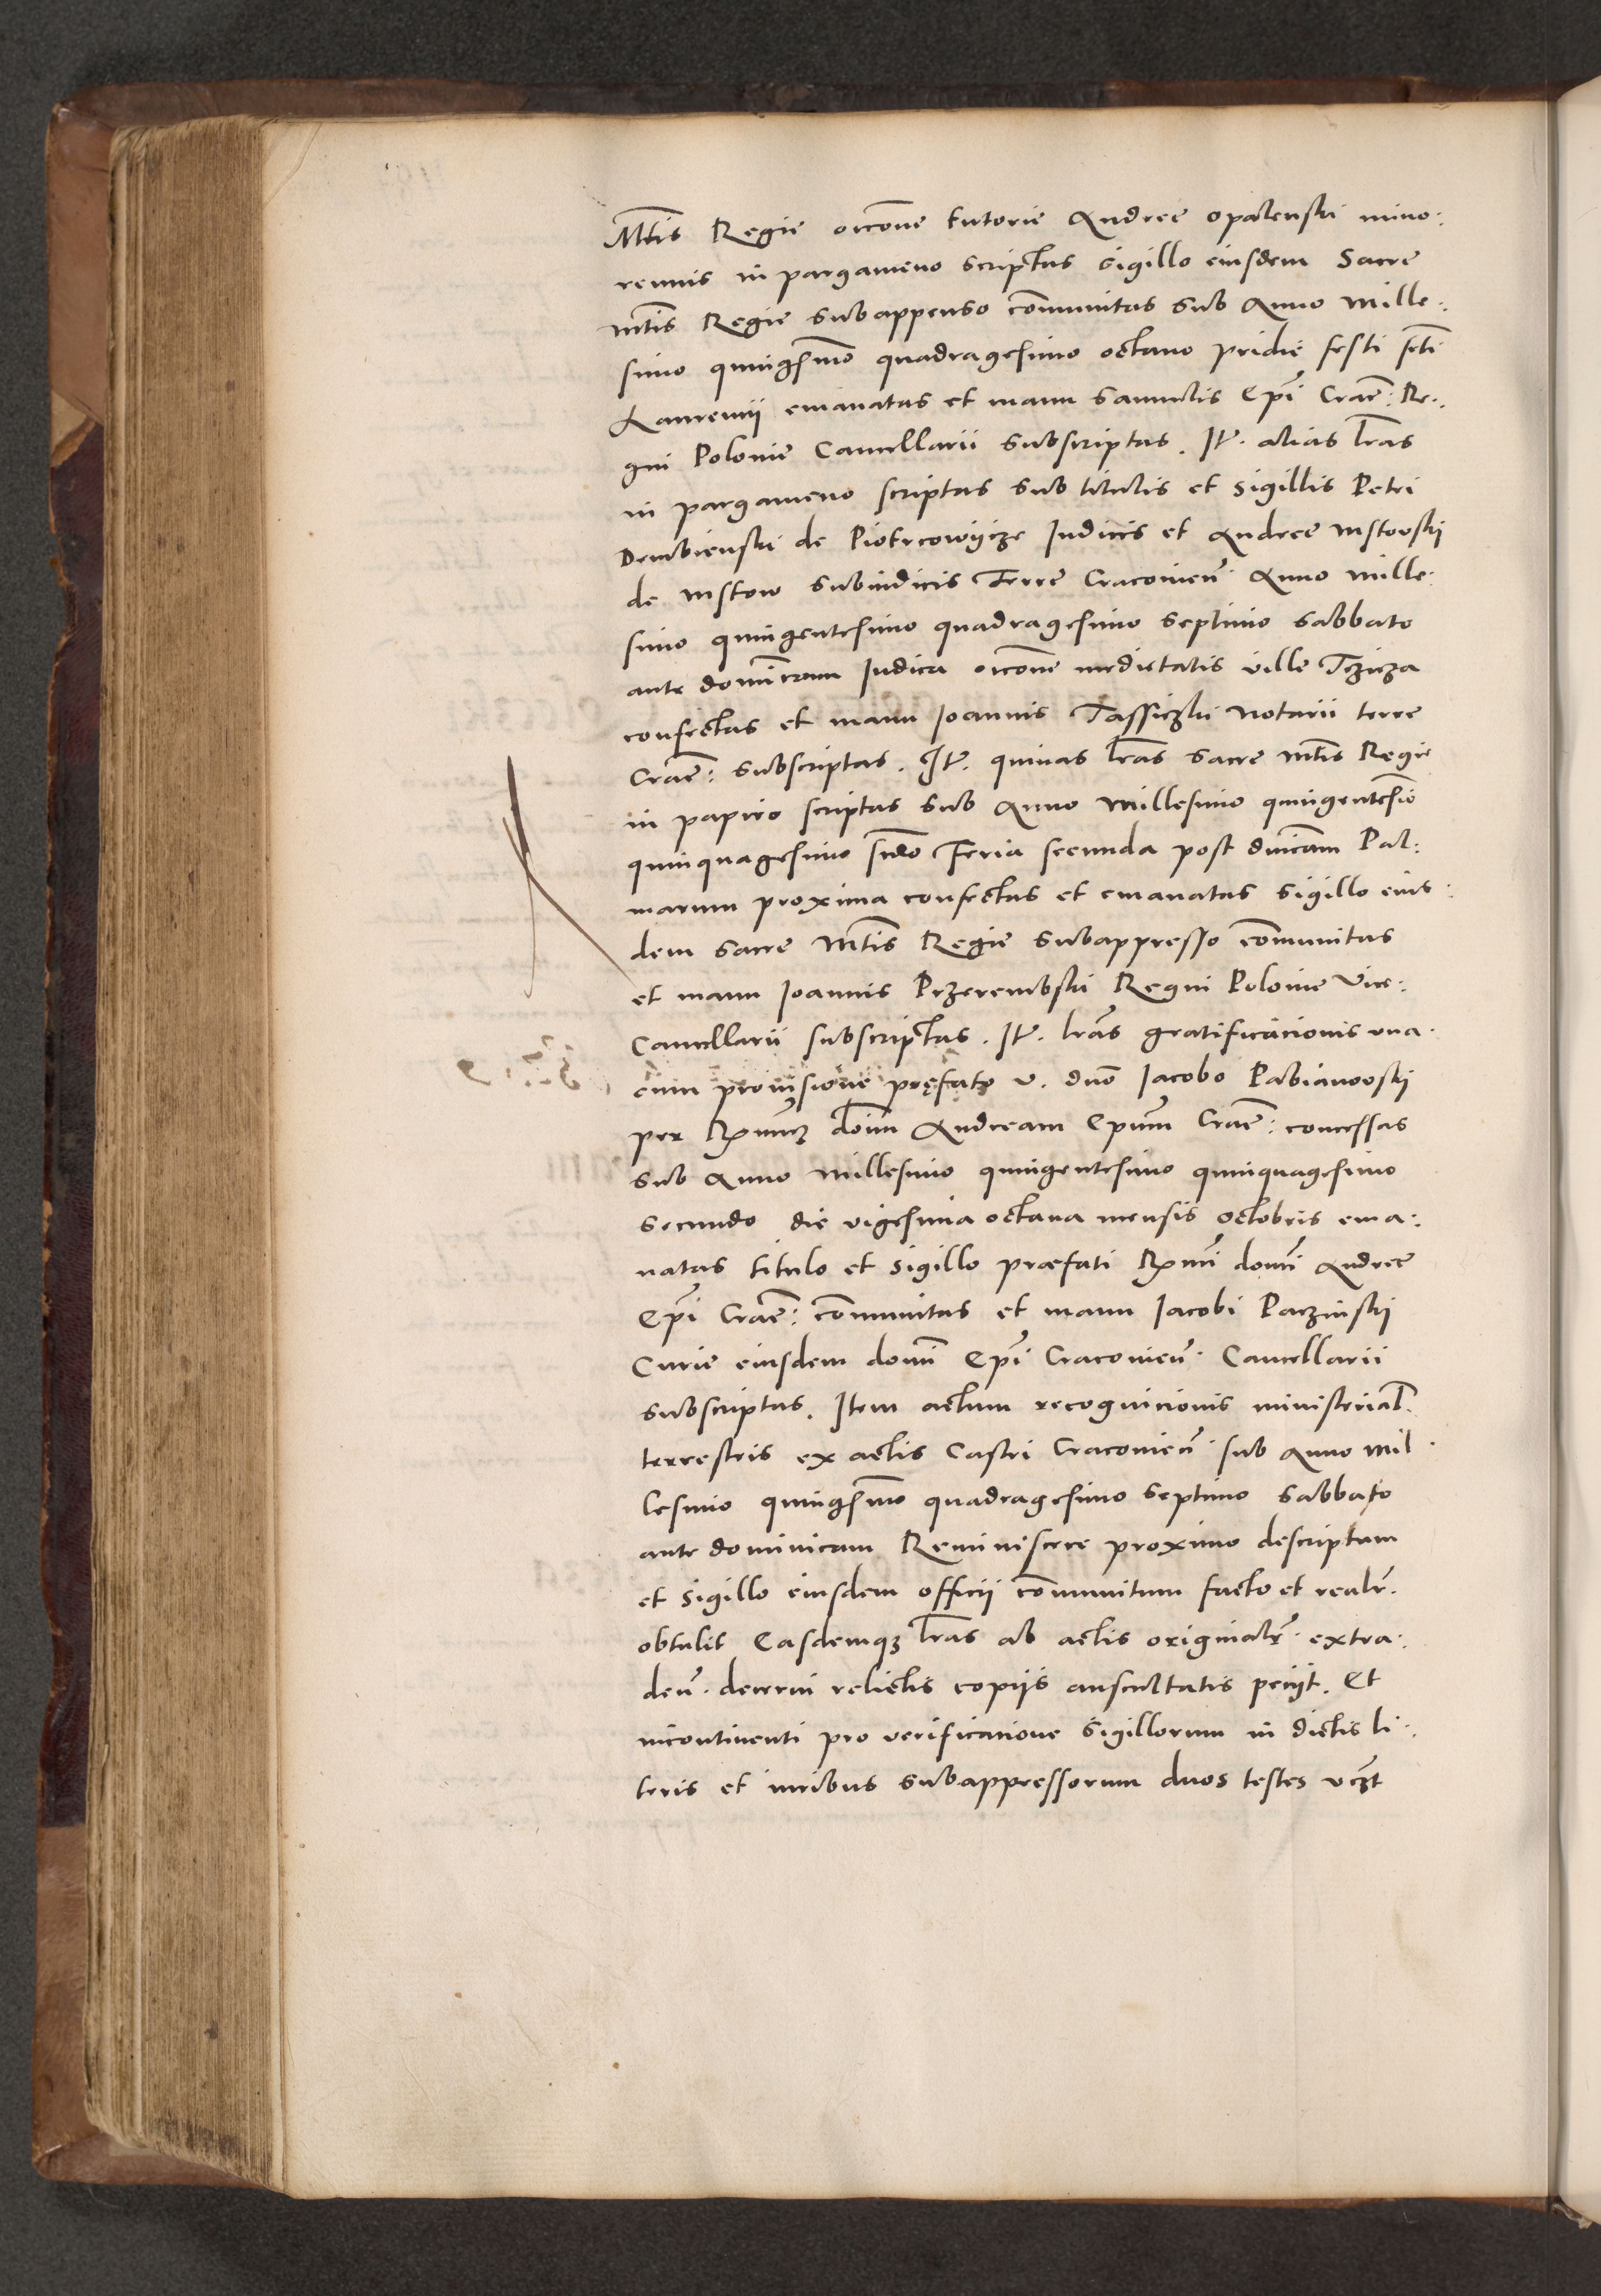 Mtis Regie occone tutorie Andree Opalenski mino:
rennis in pargameno scriptas sigillo eiusdem Sacre
mtis Regie subappenso communitas sub Anno mille:
simo quingsmo quadragesimo octavo pridie festi scti
Laurencii emanatas et manu Samuelis Epi Crac: Re:
gni Polonie Cancellarii subscriptas. It. alias lras
in pargameno scriptas sub titulis et sigillis Petri
Dembienski de Piotrcowijcze Iudicis et Andree Mstovskij
de Mstow subiudicis Terre Cracovien. Anno mille:
simo quingentesimo quadragesimo septimo sabbato
ante dominicam Iudica occone medietatis ville Tczicza
confectas et manu Joannis Tassiczki Notarii terre
Crac: subscriptas. It. quinas lras sacre mtis Regie
in papiro scriptas sub Anno Millesimo quingentesio
quinquagesimo scdo Feria secunda post dnicam Pal:
marum proxima confectas et emanatas sigillo eius:
dem sacre Mtis Regie subappresso communitas
et manu Joannis Przerembski Regni Polonie Vice:
Cancellarii subscriptas. It. lras gratificacionis una
cum provisione pręfato v. dno Iacobo Pabianovskij
per Rmumq dom Andream Epum Crac: concessas
sub Anno Millesimo quingentesimo quinquagesimo
secundo die vigesima octava mensis Octobris ema:
natas titulo et sigillo praefati Rmi domi Andree
Epi Crac: communitas et manu Iacobi Paczinskij
Curie eiusdem domi Epi Cracovien. Cancellarii
subscriptas. Item actum recognicionis ministerial.
terrestris ex actis Castri Cracovien. sub Anno Mil
lesimo quingsmo quadragesimo septimo Sabbato
ante dominicam Reminiscere proximo descriptum
et sigillo eiusdem officii communitum facto et realr.
obtulit Easdemq lras ab actis originalr. extra:
den. decerni relictis copijs auscultatis pecijt. Et
incontinenti pro verificatione Sigillorum in dictis li:
teris et iuribus subappressorum duos testes vczt